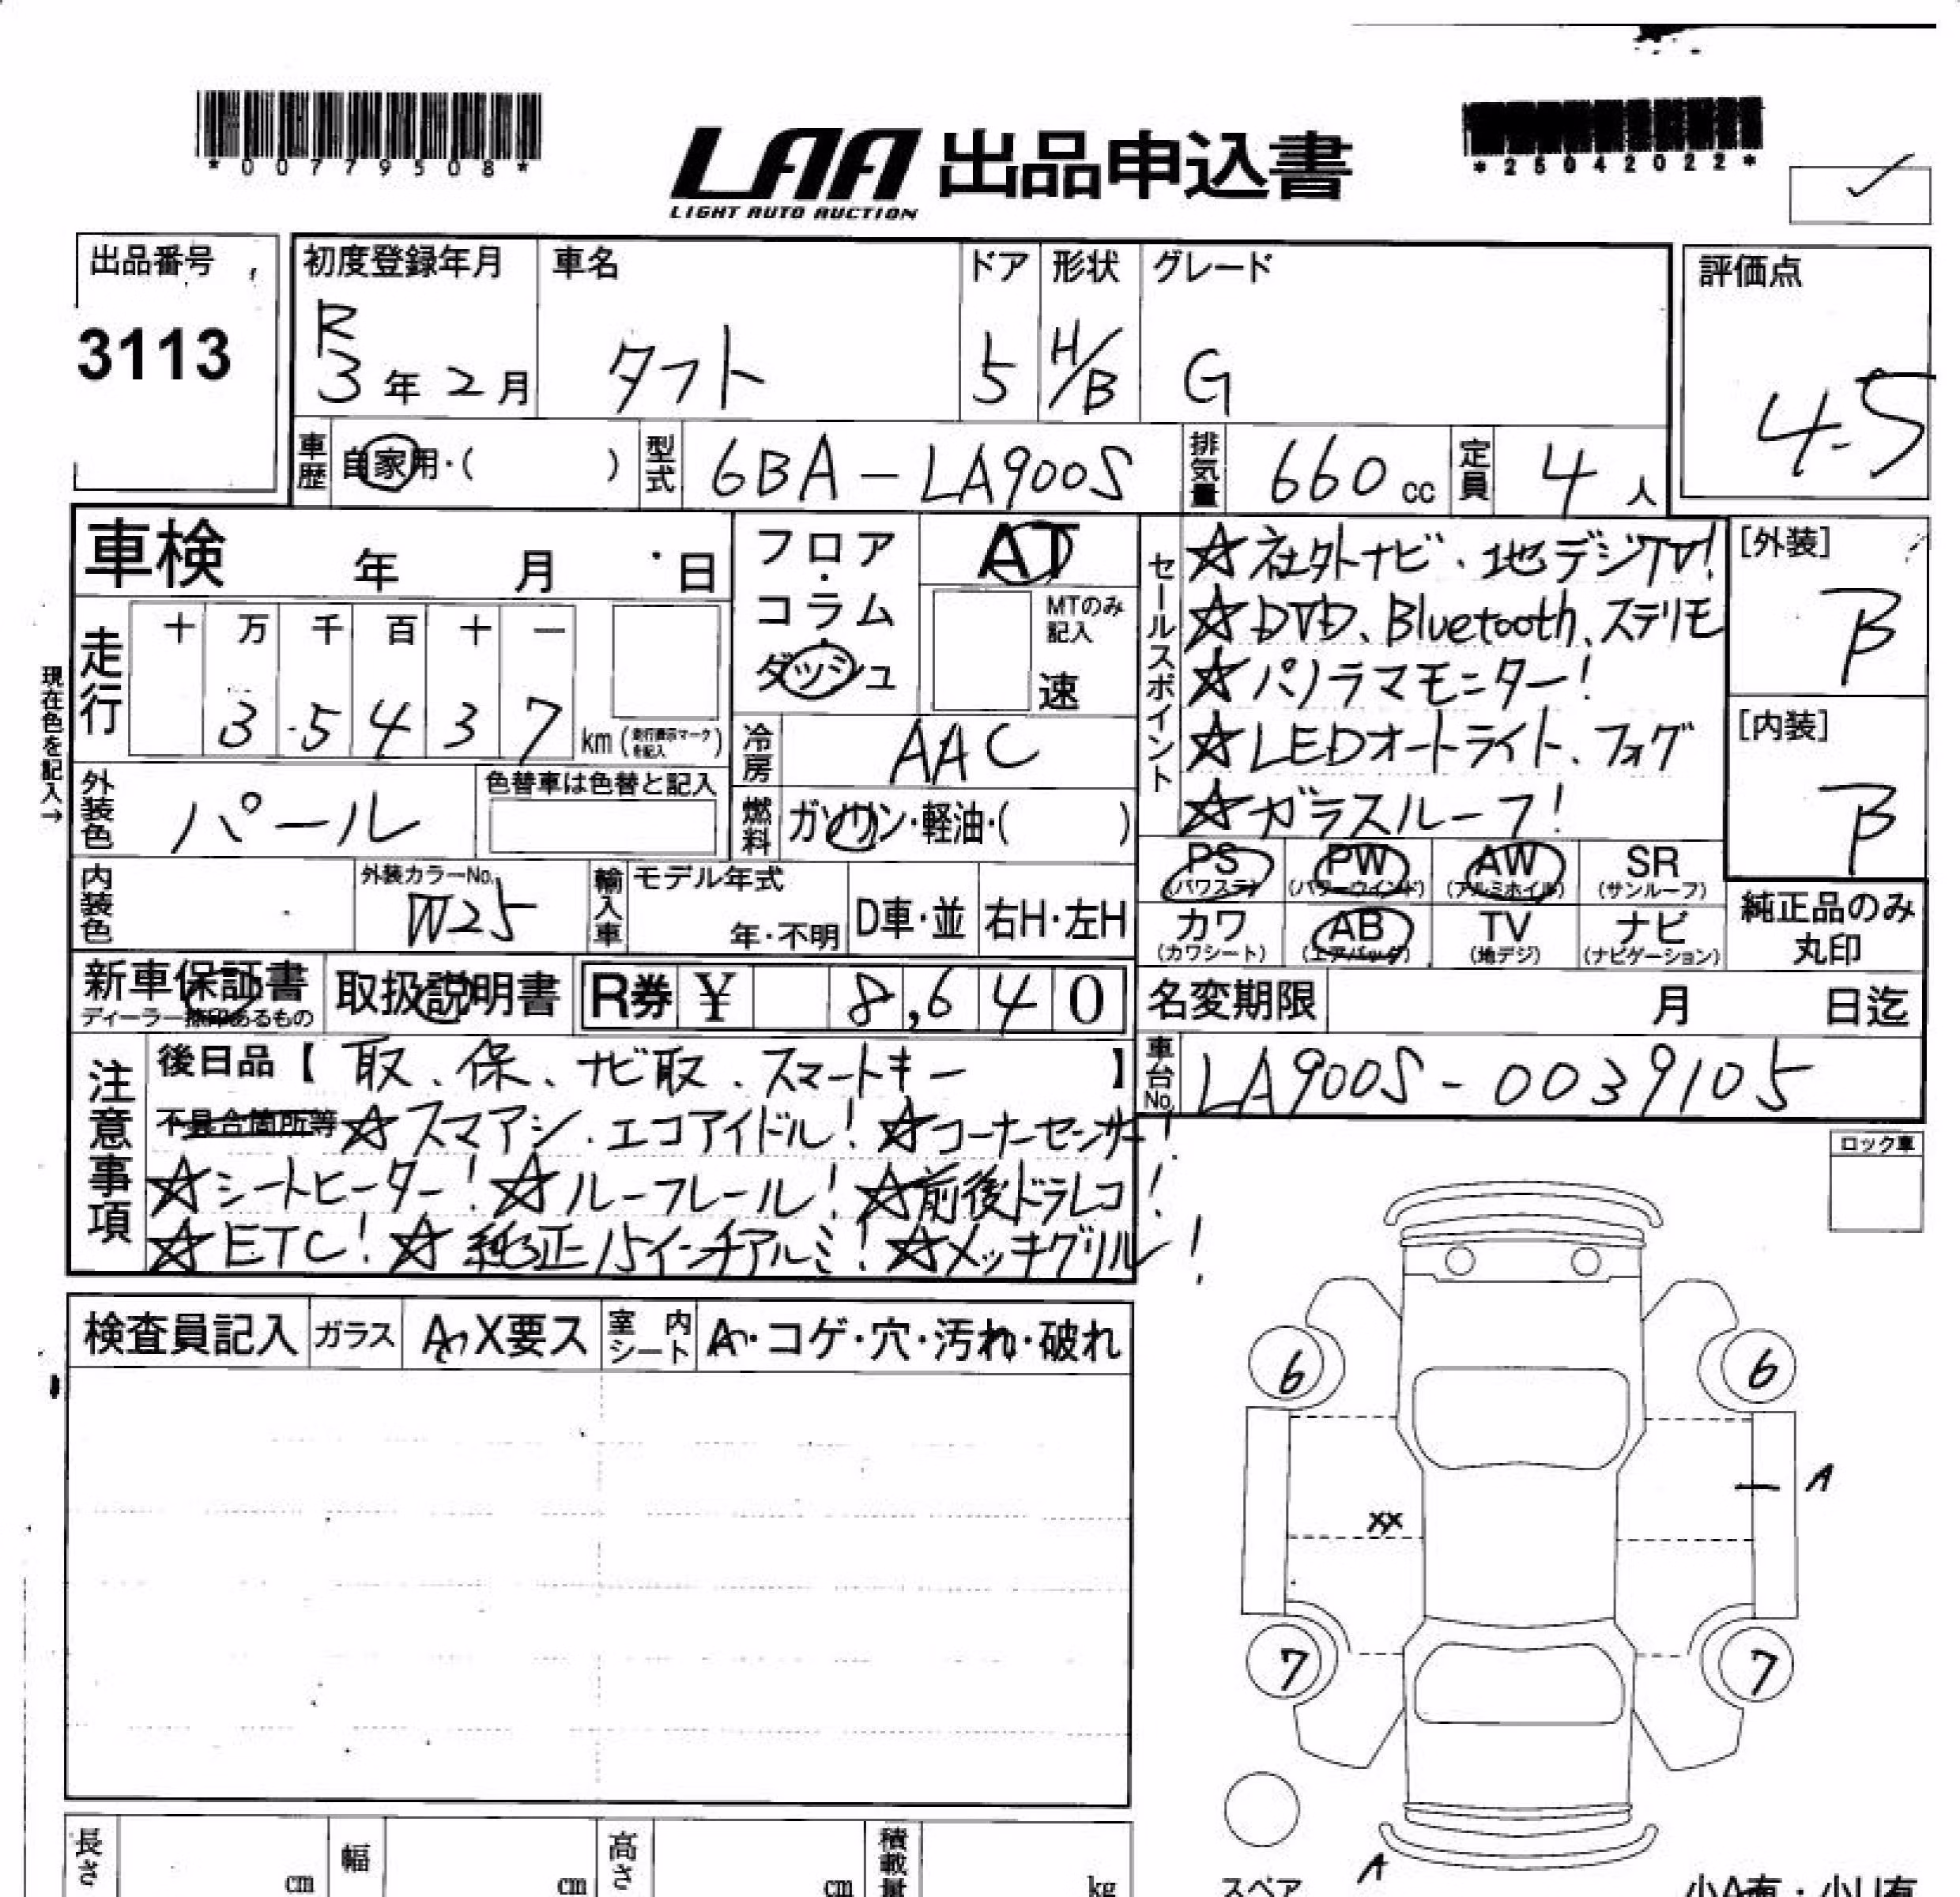 *00779508*
LAA 出品申込書
LIGHT AUTO AUCTION
*25042022*
出品番号
3113
初度登録年月
R
3年2月
車名
タフト
ドア
5
形状
H/B
グレード
G
評価点
4.5
車歴
自家用・( )
型式
6BA-LA900S
排気量
660cc
定員
4人
車検 年 月 日
現在色を記入→
走行
十 万 千 百 十 一
3 5 4 3 7 km (走行表示マークを記入)
フロア・コラム・ダッシュ
AT
MTのみ記入
速
冷房
AAC
燃料
ガソリン・軽油・( )
外装色
パール
色替車は色替と記入
内装色
外装カラーNo.
W25
輸入車
モデル年式
年・不明
D車・並
右H・左H
セールスポイント
☆社外ナビ・地デジTV!
☆DVD、Bluetooth、ステリモ
☆パノラマモニター!
☆LEDオートライト、フォグ
☆ガラスルーフ!
[外装]
B
[内装]
B
PS (パワステ)
PW (パワーウインド)
AW (アルミホイル)
SR (サンルーフ)
カワ (カワシート)
AB (エアバッグ)
TV (地デジ)
ナビ (ナビゲーション)
純正品のみ丸印
新車保証書
ディーラー捺印あるもの
取扱説明書
R券 ¥ 8,640
名変期限 月 日迄
車台No.
LA900S-0039105
注意事項
後日品【取、保、ナビ取、スマートキー】
不具合箇所等 ☆スマアシ、エコアイドル! ☆コーナーセンサー!
☆シートヒーター! ☆ルーフレール! ☆前後ドラレコ!
☆ETC! ☆純正15インチアルミ! ☆メッキグリル!
ロック車
検査員記入
ガラス
A・X要ス
室内シート
A・コゲ・穴・汚れ・破れ
6
6
A
XX
7
7
A
スペア
小A有・小U有
長さ cm
幅 cm
高さ cm
積載量 kg